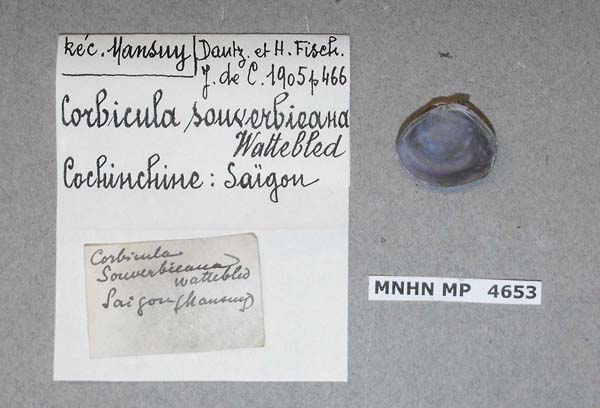 réc. Mansuy
Dautz. et H. Fisch.
J. de C. 1905 p 466
Corbicula souverbieana
Wattebled
Cochinchine : Saïgon
Corbicula
Souverbieana
Wattebled
Saigon (Mansuy)
MNHN MP 4653